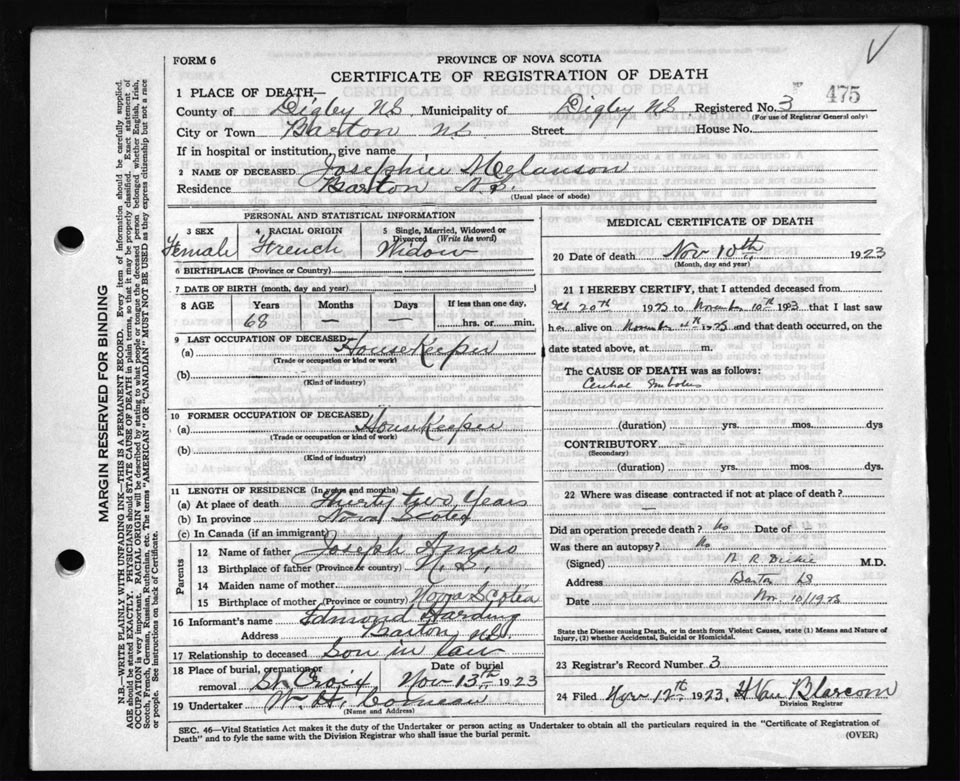 FORM 6
PROVINCE OF NOVA SCOTIA
CERTIFICATE OF REGISTRATION OF DEATH
475
1 PLACE OF DEATH—
County of Digby NS Municipality of Digby NS Registered No. 3
(For use of Registrar General only)
City or Town Barton NS Street House No.
If in hospital or institution, give name
2 NAME OF DECEASED Josephine Melanson
Residence Barton N.S.
(Usual place of abode)
PERSONAL AND STATISTICAL INFORMATION
3 SEX Female
4 RACIAL ORIGIN French
5 Single, Married, Widowed or Divorced (Write the word) Widow
6 BIRTHPLACE (Province or Country)
7 DATE OF BIRTH (month, day and year)
8 AGE Years 68 Months — Days — If less than one day, hrs. or min.
9 LAST OCCUPATION OF DECEASED
(a) HouseKeeper
(Trade or occupation or kind of work)
(b)
(Kind of industry)
10 FORMER OCCUPATION OF DECEASED
(a) HouseKeeper
(Trade or occupation or kind of work)
(b)
(Kind of industry)
11 LENGTH OF RESIDENCE (In years and months)
(a) At place of death Thirty two Years
(b) In province Nova Scotia
(c) In Canada (if an immigrant)
Parents
12 Name of father Joseph Amero
13 Birthplace of father (Province or country) N.S.
14 Maiden name of mother
15 Birthplace of mother (Province or country) Nova Scotia
16 Informant's name Edmond Harding
Address Barton N.S.
17 Relationship to deceased Son in law
18 Place of burial, cremation or removal St. Croix Date of burial Nov 13th 1923
19 Undertaker W. H. Comeau
(Name and Address)
MEDICAL CERTIFICATE OF DEATH
20 Date of death Nov 10th 1923
(Month, day and year)
21 I HEREBY CERTIFY, that I attended deceased from
20th 1923 to November 10th 1923 that I last saw
her alive on November 1923 and that death occurred, on the
date stated above, at m.
The CAUSE OF DEATH was as follows:
Embolus
(duration) yrs. mos. dys
CONTRIBUTORY —
(Secondary)
(duration) yrs. mos. dys.
22 Where was disease contracted if not at place of death?
—
Did an operation precede death? No Date of —
Was there an autopsy? No
(Signed) M.D.
Address Barton NS
Date Nov. 10/1923
State the Disease causing Death, or in death from Violent Causes, state (1) Means and Nature of Injury, (2) whether Accidental, Suicidal or Homicidal.
23 Registrar's Record Number 3
24 Filed Nov 12th 1923. H Van Blarcom
Division Registrar
SEC. 46—Vital Statistics Act makes it the duty of the Undertaker or person acting as Undertaker to obtain all the particulars required in the "Certificate of Registration of
Death" and to fyle the same with the Division Registrar who shall issue the burial permit. (OVER)
MARGIN RESERVED FOR BINDING
N.B.—WRITE PLAINLY WITH UNFADING INK—THIS IS A PERMANENT RECORD. Every item of information should be carefully supplied.
AGE should be stated EXACTLY. PHYSICIANS should STATE CAUSE OF DEATH in plain terms, so that it may be properly classified. Exact statement of
OCCUPATION is very important. RACIAL ORIGIN will be described by stating to what people or tongue the deceased person belonged whether English, Irish,
Scotch, French, German, Russian, Ruthenian, etc. The terms "AMERICAN" OR "CANADIAN" MUST NOT BE USED as they express citizenship but not a race
or people. See instructions on back of Certificate.